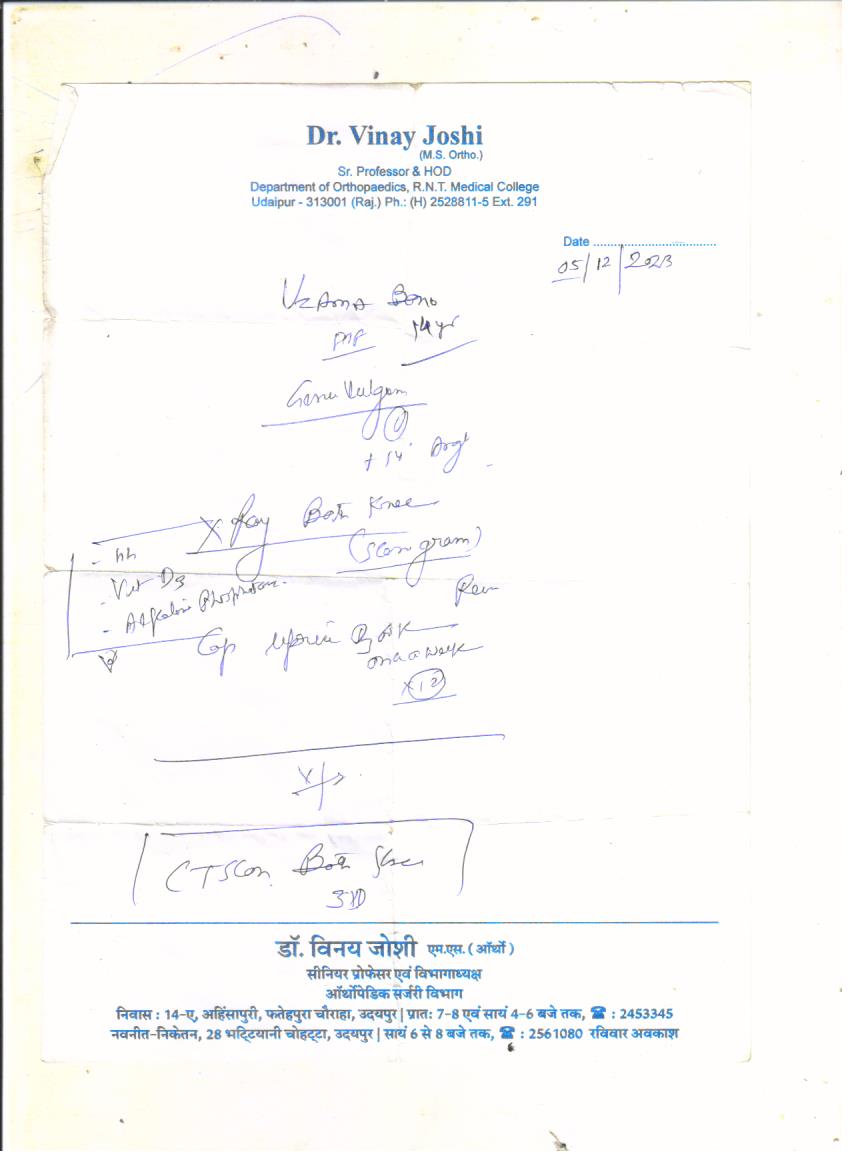 Dr. Vinay Joshi
(M.S. Ortho.)
Sr. Professor & HOD
Department of Orthopaedics, R.N.T. Medical College
Udaipur - 313001 (Raj.) Ph.: (H) 2528811-5 Ext. 291
Date ....................................
05/12/2023
Bano
14 yr
Genu Valgum
X Ray Both Knee
(Scanogram)
- Vit D3
- Alkaline Phosphatase
Cap 60K
once a week
x 12
CT Scan Both Knee
3D
डॉ. विनय जोशी एम.एस. ( ऑर्थो )
सीनियर प्रोफेसर एवं विभागाध्यक्ष
ऑर्थोपेडिक सर्जरी विभाग
निवास : 14-ए, अहिंसापुरी, फतेहपुरा चौराहा, उदयपुर | प्रातः 7-8 एवं सायं 4-6 बजे तक, ☎ : 2453345
नवनीत-निकेतन, 28 भट्टियानी चोहट्टा, उदयपुर | सायं 6 से 8 बजे तक, ☎ : 2561080 रविवार अवकाश